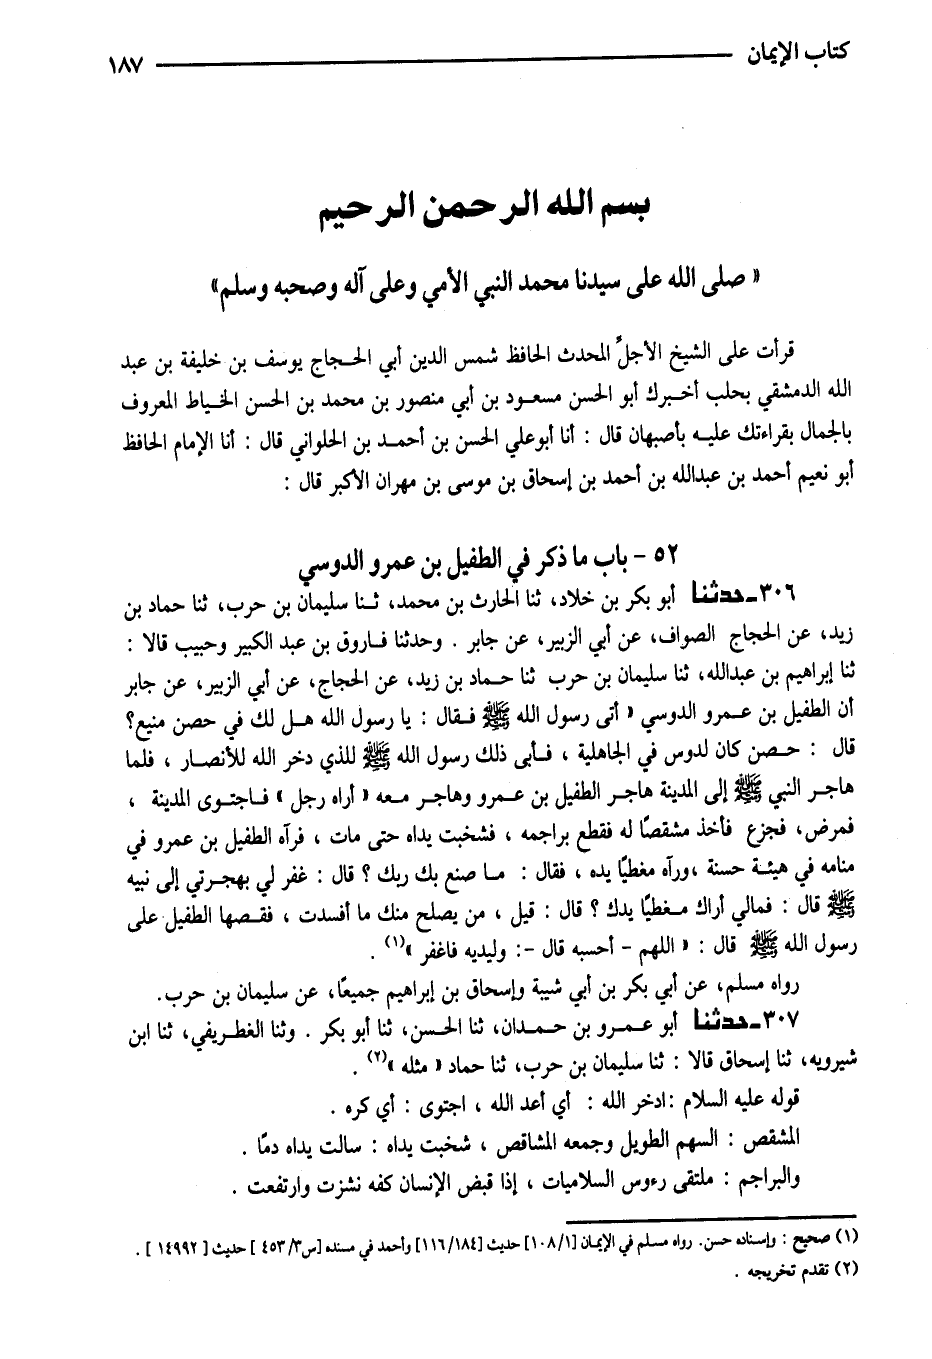 كتاب الإيمان ١٨٧
بسم الله الرحمن الرحيم
« صلى الله على سيدنا محمد النبي الأمي وعلى آله وصحبه وسلم»
قرأت على الشيخ الأجلِّ المحدث الحافظ شمس الدين أبي الحجاج يوسف بن خليفة بن عبد
الله الدمشقي بحلب أخبرك أبو الحسن مسعود بن أبي منصور بن محمد بن الحسن الخياط المعروف
بالجمال بقراءتك عليه بأصبهان قال : أنا أبوعلي الحسن بن أحمد بن الحلواني قال : أنا الإمام الحافظ
أبو نعيم أحمد بن عبدالله بن أحمد بن إسحاق بن موسى بن مهران الأكبر قال :
٥٢ - باب ما ذكر في الطفيل بن عمرو الدوسي
٣٠٦ـ حدثنا أبو بكر بن خلاد، ثنا الحارث بن محمد، ثنا سليمان بن حرب، ثنا حماد بن
زيد، عن الحجاج الصواف، عن أبي الزبير، عن جابر . وحدثنا فاروق بن عبد الكبير وحبيب قالا :
ثنا إبراهيم بن عبدالله، ثنا سليمان بن حرب ثنا حماد بن زيد، عن الحجاج، عن أبي الزبير، عن جابر
أن الطفيل بن عمرو الدوسي « أتى رسول الله ﷺ فقال : يا رسول الله هل لك في حصن منيع؟
قال : حصن كان لدوس في الجاهلية ، فأبى ذلك رسول الله ﷺ للذي دخر الله للأنصار ، فلما
هاجر النبي ﷺ إلى المدينة هاجر الطفيل بن عمرو وهاجر معه « أراه رجل » فاجتوى المدينة ،
فمرض، فجزع فأخذ مشقصًا له فقطع براجمه ، فشخبت يداه حتى مات ، فرآه الطفيل بن عمرو في
منامه في هيئة حسنة ،ورآه مغطيًا يده ، فقال : ما صنع بك ربك ؟ قال : غفر لي بهجرتي إلى نبيه
ﷺ قال : فمالي أراك مغطيًا يدك ؟ قال : قيل ، من يصلح منك ما أفسدت ، فقصها الطفيل على
رسول الله ﷺ قال : « اللهم - أحسبه قال -: وليديه فاغفر »(١) .
رواه مسلم، عن أبي بكر بن أبي شيبة وإسحاق بن إبراهيم جميعًا، عن سليمان بن حرب.
٣٠٧ـ حدثنا أبو عمرو بن حمدان، ثنا الحسن، ثنا أبو بكر . وثنا الغطريفي، ثنا ابن
شيرويه، ثنا إسحاق قالا : ثنا سليمان بن حرب، ثنا حماد « مثله »(٢) .
قوله عليه السلام :ادخر الله : أي أعد الله ، اجتوى : أي كره .
المشقص : السهم الطويل وجمعه المشاقص ، شخبت يداه : سالت يداه دمًا .
والبراجم : ملتقى رءوس السلاميات ، إذا قبض الإنسان كفه نشزت وارتفعت .
(١) صحيح : وإسناده حسن. رواه مسلم في الإيمان [١٠٨/١] حديث [١١٦/١٨٤] وأحمد في مسنده [س٤٥٣/٣ ] حديث [ ١٤٩٩٢ ] .
(٢) تقدم تخريجه .